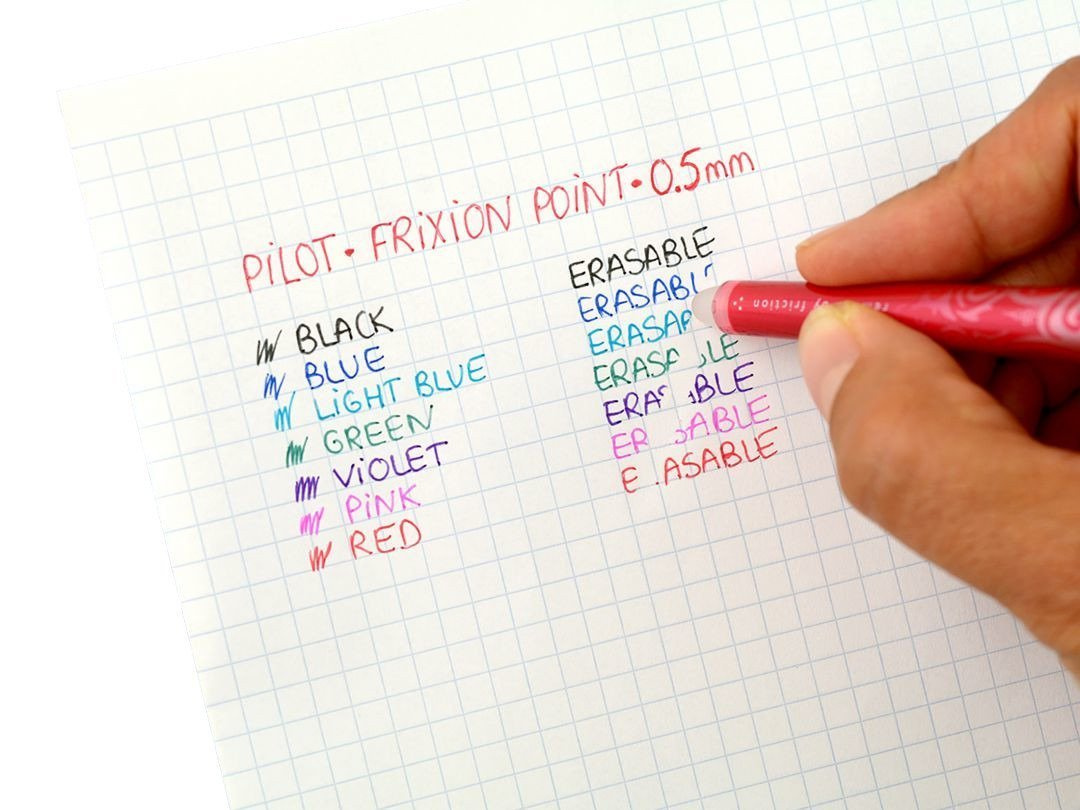 PiLOT • FRiXiON POiNT • 0.5mm
BLACK
BLUE
LiGHT BLUE
GREEN
ViOLET
PiNK
RED
ERASABLE
ERASABL
ERASA
ERASA LE
ERA BLE
ER ABLE
E ASABLE
by friction